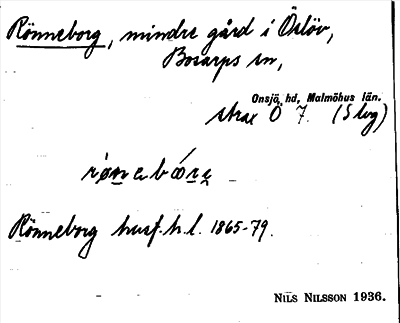 Rönneborg, mindre gård i Öslöv,
Bosarps sn,
Onsjö hd, Malmöhus län.
strax Ö 7. (Skog)
Rönneborg husf.h.l. 1865-79.
NILS NILSSON 1936.